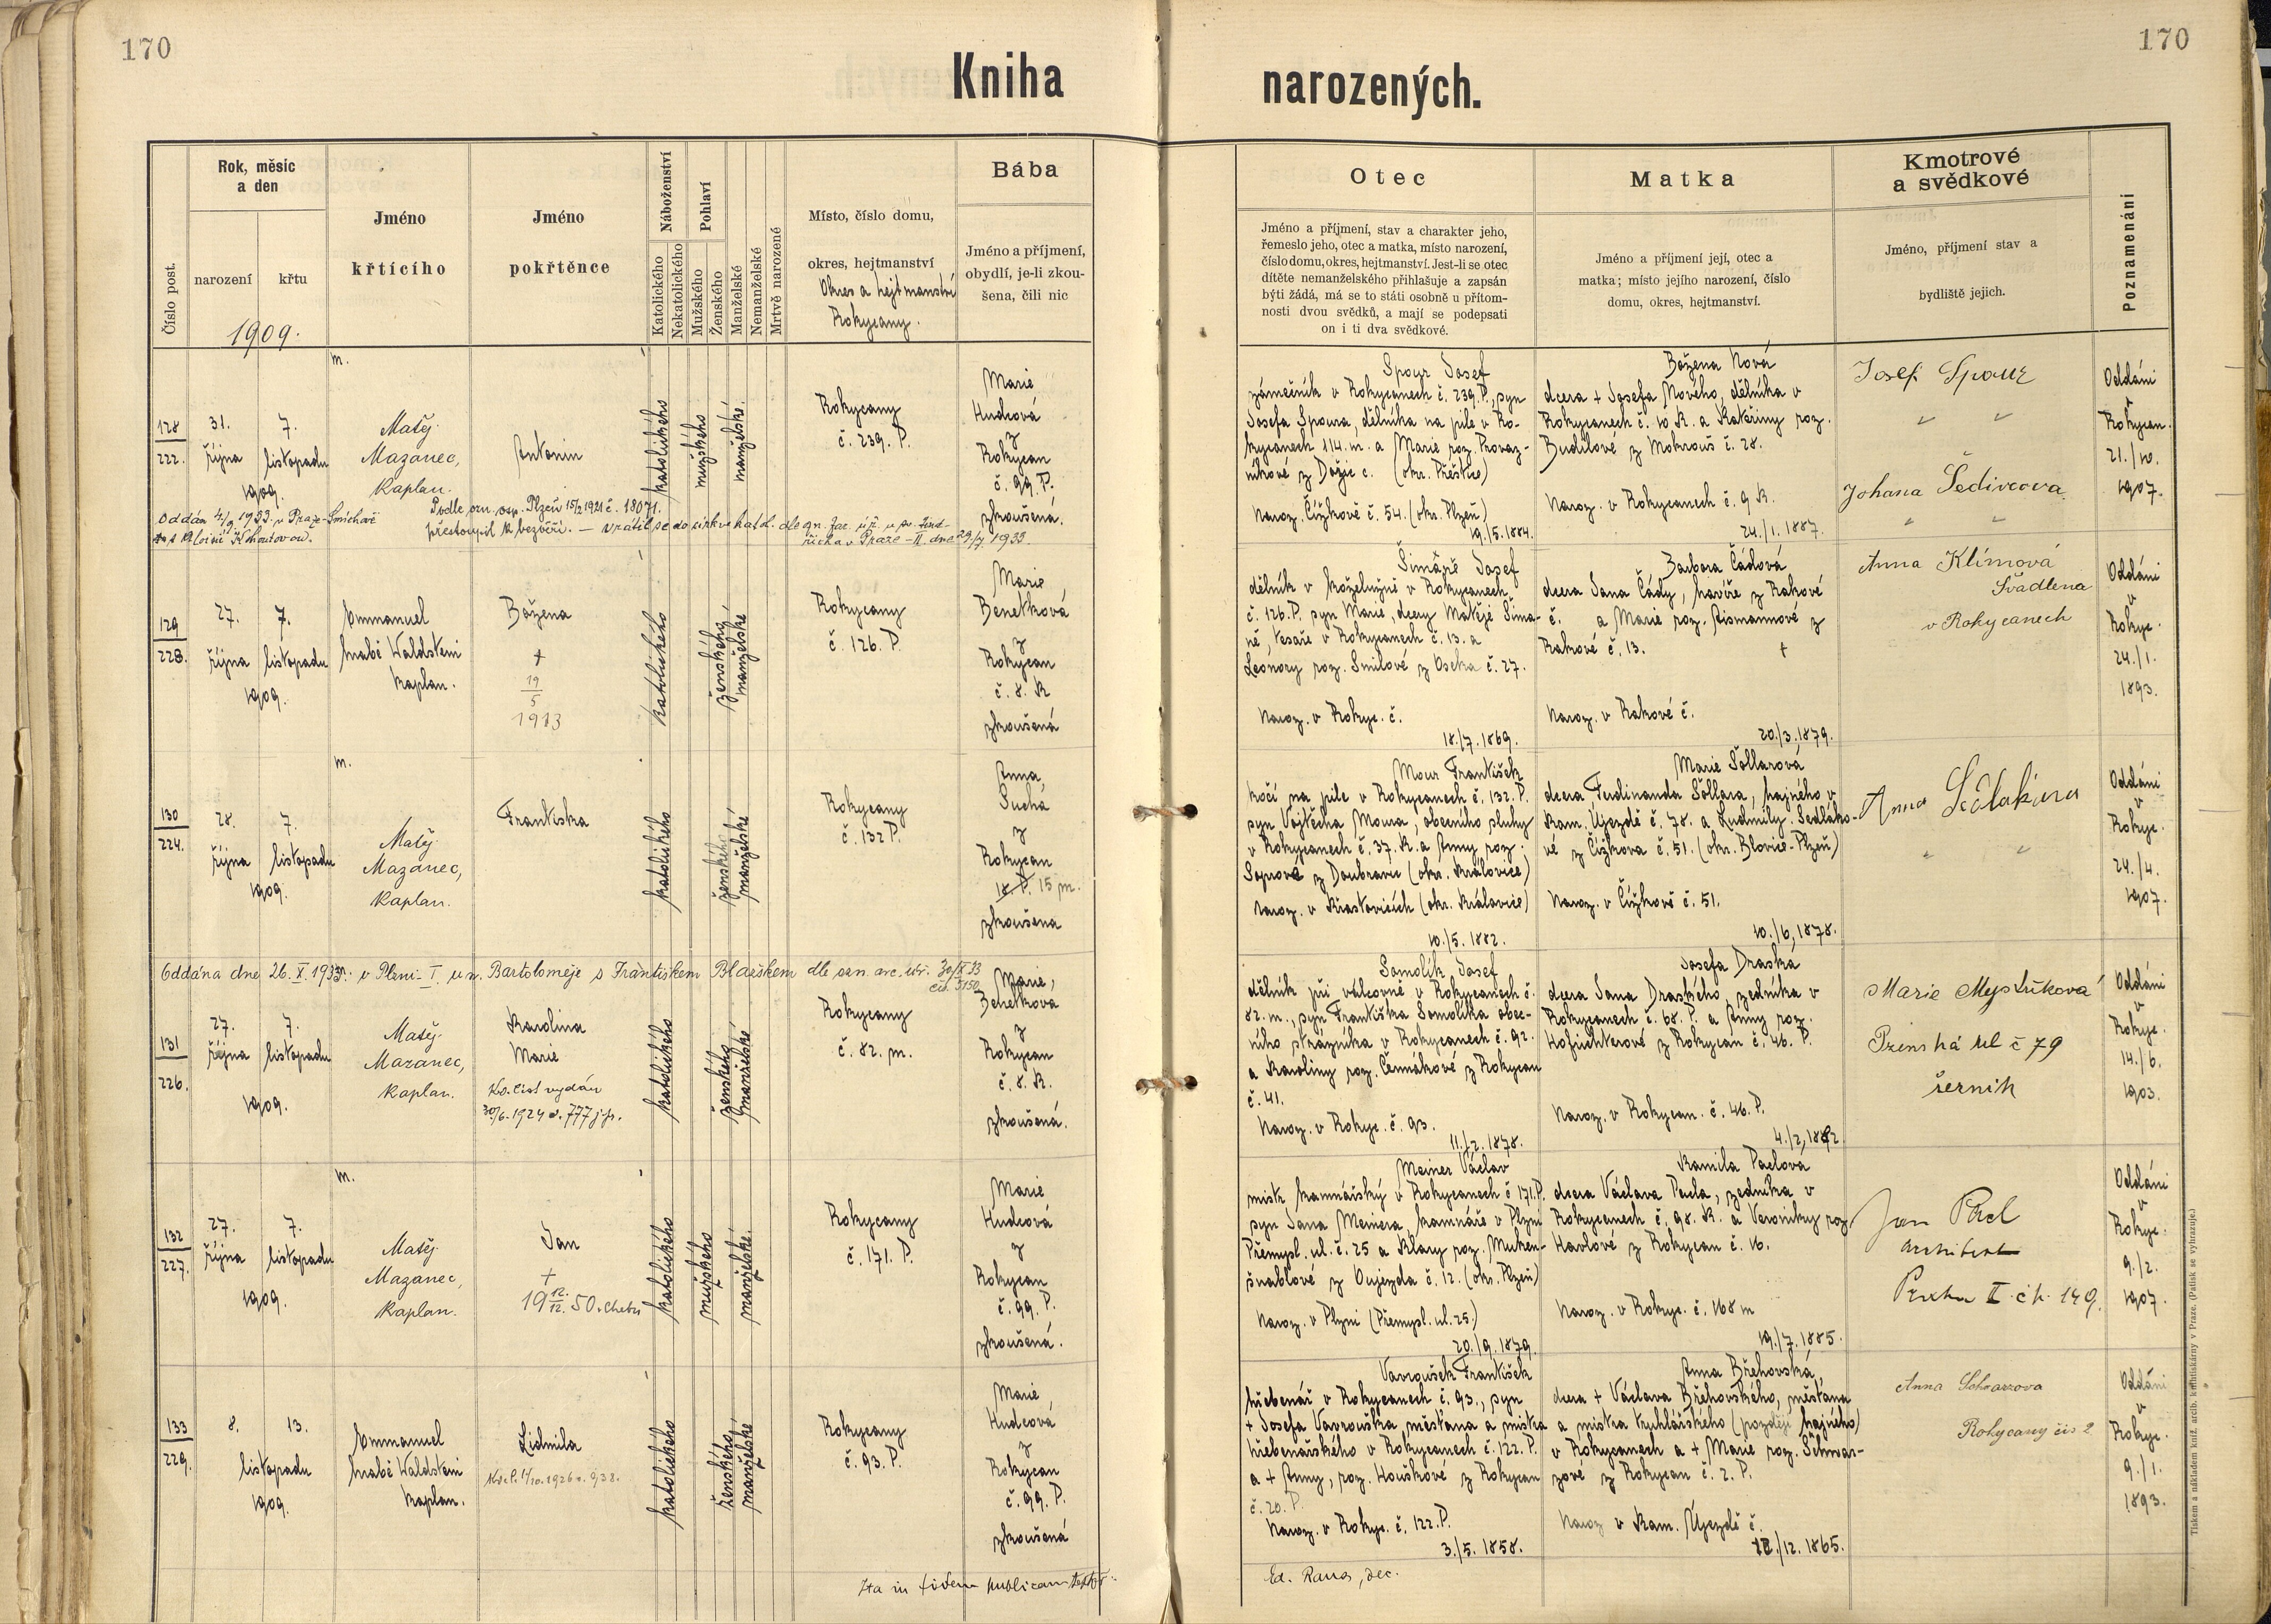 170
170
Kniha
narozených.
Číslo post.
Rok, měsíc
a den
narození
křtu
1909.
Jméno
křtícího
Jméno
pokřtěnce
Náboženství
Katolického
Nekatolického
Pohlaví
Mužského
Ženského
Manželské
Nemanželské
Mrtvě narozené
Místo, číslo domu,
okres, hejtmanství
Okres a hejtmanství
Rokycany.
Bába
Jméno a příjmení,
obydlí, je-li zkou-
šena, čili nic
Otec
Jméno a příjmení, stav a charakter jeho,
řemeslo jeho, otec a matka, místo narození,
číslo domu, okres, hejtmanství. Jest-li se otec
dítěte nemanželského přihlašuje a zapsán
býti žádá, má se to státi osobně u přítom-
nosti dvou svědků, a mají se podepsati
on i ti dva svědkové.
Matka
Jméno a příjmení její, otec a
matka; místo jejího narození, číslo
domu, okres, hejtmanství.
Kmotrové
a svědkové
Jméno, příjmení stav a
bydliště jejich.
Poznamenání
m.
128
222.
31.
října
7.
listopadu
1909.
Matěj
Mazanec,
Kaplan.
Antonín
katolického
mužského
manželské.
Rokycany
č. 239. P.
Marie
Hudcová
z
Rokycan
č. 99. P.
zkoušená.
Oddán 4/9 1933 v Praze-Smíchově
Kohoutovou.
Podle ozn. osp. Plzeň 15/2 1921 č. 18071.
přestoupil k bezvěří. — vrátil se do církve katol. dle
v Praze-II. dne 29/7 1933.
Spour Josef
zámečník v Rokycanech č. 239. P., syn
Josefa Spoura, dělníka na pile v Ro-
kycanech 114. m. a Marie roz. Provaz-
níkové z Dožic c. (okr. Přeštice)
Naroz. Čížkově č. 54. (okr. Plzeň)
19./5. 1884.
Božena Nová
dcera + Josefa Nového, dělníka v
Rokycanech č. 10 K. a Kateřiny roz.
Budilové z Mokrouš č. 28.
Naroz. v Rokycanech č. 9 K.
24./1. 1887.
Josef Spour
" "
Johana Šedivcova
" "
Oddáni
v
Rokycan.
21./10.
1907.
129
223.
27.
října
7.
listopadu
1909.
Emmanuel
hrabě Waldstein
kaplan.
Božena
+
19
5
1913
katolického
ženského
manželské
Rokycany
č. 126. P.
Marie
Benetková
z
Rokycan
č. 8. K
zkoušená
Šimáně Josef
dělník v koželužně v Rokycanech
č. 126. P. syn Marie, dcery Matěje Šima-
ně, tesaře v Rokycanech č. 13. a
Leonory roz. Smilové z Oseka č. 27.
Naroz. v Rokyc. č.
18./7. 1869.
Barbora Čádová
dcera Jana Čády, havíře z Rakové
č. a Marie roz. Aismannové z
Rakové č. 13.
+
Naroz. v Rakové č.
20./3. 1879.
Anna Klímová
Švadlena
v Rokycanech
Oddáni
v
Rokyc.
24./1.
1893.
m.
130
224.
28.
října
7.
listopadu
1909.
Matěj
Mazanec,
Kaplan.
Frantiska
katolického
ženského
manželské
Rokycany
č. 132 P.
Anna
Suchá
z
Rokycan
18. P. 15 m.
zkoušena
Oddána dne 26. X. 1933. v Plzni-I. u sv. Bartoloměje s Františkem Blažkem dle ozn. arc. úř. 30/X 33
čís. 3150
Mour František
kočí na pile v Rokycanech č. 132. P.
syn Vojtěcha Moura, obecního sluhy
v Rokycanech č. 37. K. a Anny roz.
Soprové z Doubravu (okr. Kralovice)
Naroz. v Křastovicích (okr. Kralovice)
10./5. 1882.
Marie Šollarová
dcera Ferdinanda Šöllara, hajného v
Kam. Újezdě č. 78. a Ludmily Sedláko-
vé z Čížkova č. 51. (okr. Blovice-Plzeň)
Naroz. v Čížkově č. 51.
10./6, 1878.
Anna Sedlákova
" "
Oddáni
v
Rokyc.
24./4.
1907.
131
226.
27.
října
7.
listopadu
1909.
Matěj
Mazanec,
Kaplan.
Karolina
Marie
Kř. list vydán
30/6. 1924 č. 777
katolického
ženského
manželské
Rokycany
č. 82. m.
Marie,
Benetkova
z
Rokycan
č. 8. K.
zkoušená.
Somolík Josef
dělník při válcovně v Rokycanech č.
82. m., syn Františka Somolíka obec-
ního strážníka v Rokycanech č. 92.
a Karoliny roz. Čermákové z Rokycan
č. 41.
Naroz. v Rokyc. č. 93.
11./2. 1878.
Josefa Draská
dcera Jana Draského, zedníka v
Rokycanech č. 68. P. a Anny roz.
Hofrichterové z Rokycan č. 46. P.
Naroz. v Rokycan. č. 46. P.
4./2, 1882
Marie Myslíková
ul č 79
Oddáni
v
Rokyc.
14./6.
1903.
m.
132
227.
27.
října
7.
listopadu
1909.
Matěj
Mazanec,
Kaplan.
Jan
+
19 12/12. 50. Cheb
katolického
mužského
manželské.
Rokycany
č. 171. P.
Marie
Hudcová
z
Rokycan
č. 99. P.
zkoušená.
Meiner Václav
mistr kamnářský v Rokycanech č 171. P.
syn Jana Meinera, kamnáře v Plzni
Přemysl. ul. č. 25 a Klary roz. Muken-
šnablové z Oujezda č. 12. (okr. Plzeň)
Naroz. v Plzni (Přemysl. ul. 25.)
20./9. 1879.
Kamila Paclová
dcera Václava Pacla, zedníka v
Rokycanech č. 98. K. a Veroniky roz.
Havlové z Rokycan č. 16.
Naroz. v Rokyc. č. 168 m
19./7. 1885.
Jan Pacl
architekt
Praha II. čp. 149.
Oddáni
v
Rokyc.
9./2.
1907.
133
229.
8.
13.
listopadu
1909.
Emmanuel
hrabě Waldstein
kaplan.
Lidmila
1/10. 1926 č. 938.
katolického
ženského
manželské
Rokycany
č. 93. P.
Marie
Hudcová
z
Rokycan
č. 99. P.
zkoušená
Vavroušek František
hřebenář v Rokycanech č. 93., syn
+ Josefa Vavrouška, měšťana a mistra
hřebenářského v Rokycanech č. 122. P.
a + Anny, roz. Houškové z Rokycan
č. 20. P.
Naroz. v Rokyc. č. 122. P.
3./5. 1858.
Anna Břehovská,
dcera + Václava Břehovského, měšťana
a mistra truhlářského (později hajného)
v Rokycanech a + Marie roz. Schwar-
zové z Rokycan č. 2. P.
Naroz v Kam. Újezdě č.
12./12. 1865.
Anna Schvarzova
Rokycany čís 2
Oddáni
v
Rokyc.
9./1.
1893.
Ita in fidem publicam testor:
Ed. Raus, dec.
Tiskem a nákladem kníž. arcib. knihtiskárny v Praze. (Patisk se vyhrazuje.)